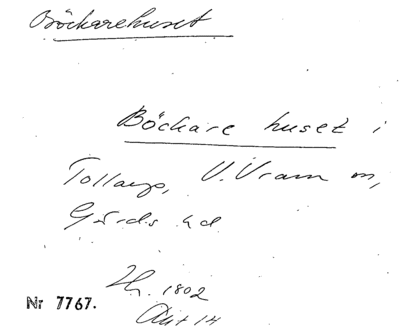 Böckarehuset
Böckare huset i
Tollarp, V. Vram sn,
Gärds hd
Lh. 1802
Nr 7767.
Akt 14